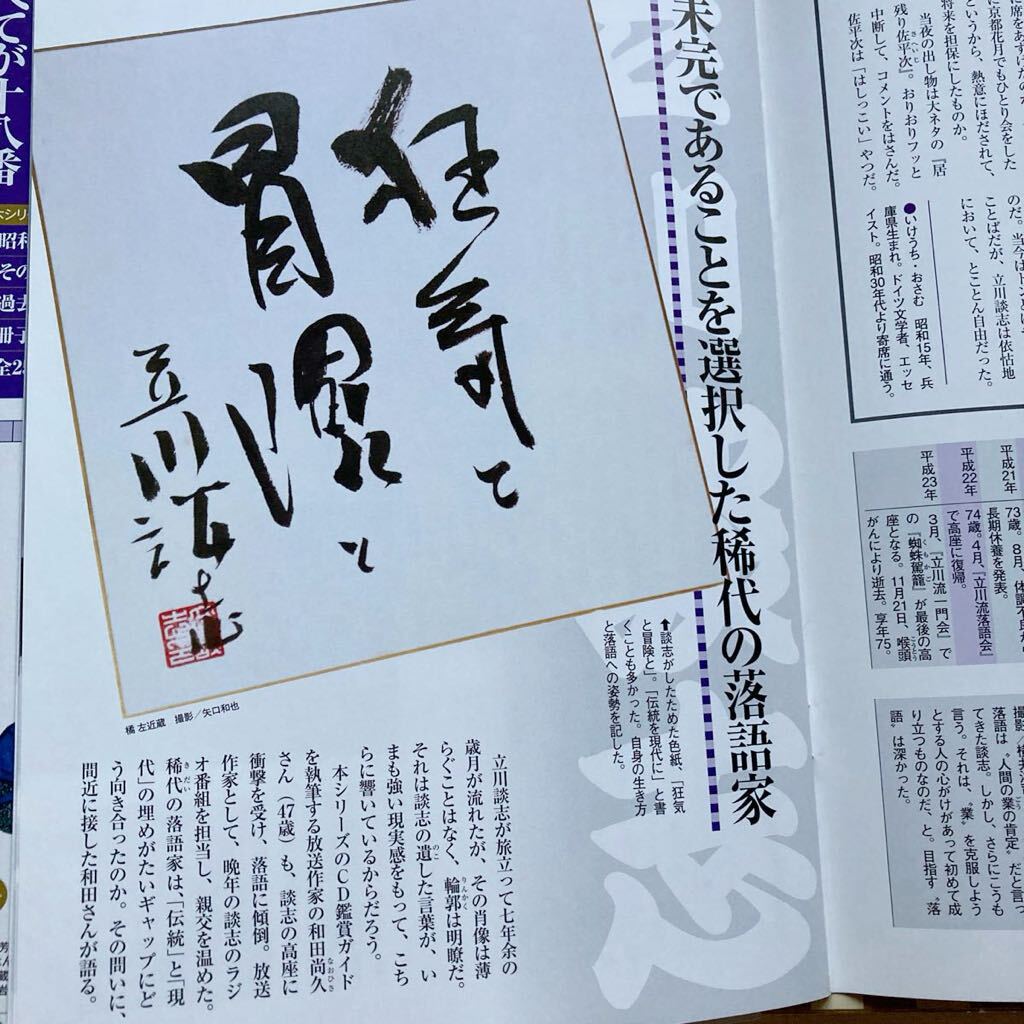 に席をあずけたのタ
に京都花月でもひとり会をした
というから、熱意にほだされて、
将来を担保にしたものか。
当夜の出し物は大ネタの『居
残り佐平次』。おりおりフッと
中断して、コメントをはさんだ。
佐平次は「はしっこい」やつだ。
のだ。当今は
ことばだが、立川談志は依怙地
において、とことん自由だった。
●いけうち・おさむ 昭和15年、兵
庫県生まれ。ドイツ文学者、エッセ
イスト。昭和30年代より寄席に通う。
平成21年
73歳。8月、体調不良
長期休養を発表。
平成22年
74歳。4月、『立川流落語会』
で高座に復帰。
平成23年
3月、『立川流一門会』で
の『蜘蛛駕籠』が最後の高
座となる。11月21日、喉頭
がんにより逝去。享年75。
落語は〝人間の業の肯定〟だと言っ
てきた談志。しかし、さらにこうも
言う。それは、〝業〟を克服しよう
とする人の心がけがあって初めて成
り立つものなのだ、と。目指す〝落
語〟は深かった。
未完であることを選択した稀代の落語家
狂気と
冒険と
立川談志
⬆談志がしたためた色紙、「狂気
と冒険と」。「伝統を現代に」と書
くことも多かった。自身の生き方
と落語への姿勢を記した。
橘 左近蔵 撮影/矢口和也
立川談志が旅立って七年余の
歳月が流れたが、その肖像は薄
らぐことはなく、輪郭は明瞭だ。
それは談志の遺した言葉が、い
まも強い現実感をもって、こち
らに響いているからだろう。
本シリーズのCD鑑賞ガイド
を執筆する放送作家の和田尚久
さん(47歳)も、談志の高座に
衝撃を受け、落語に傾倒。放送
作家として、晩年の談志のラジ
オ番組を担当し、親交を温めた。
稀代の落語家は、「伝統」と「現
代」の埋めがたいギャップにど
う向き合ったのか。その問いに、
間近に接した和田さんが語る。
てが十八番
昭和
その
過去
冊子
全2